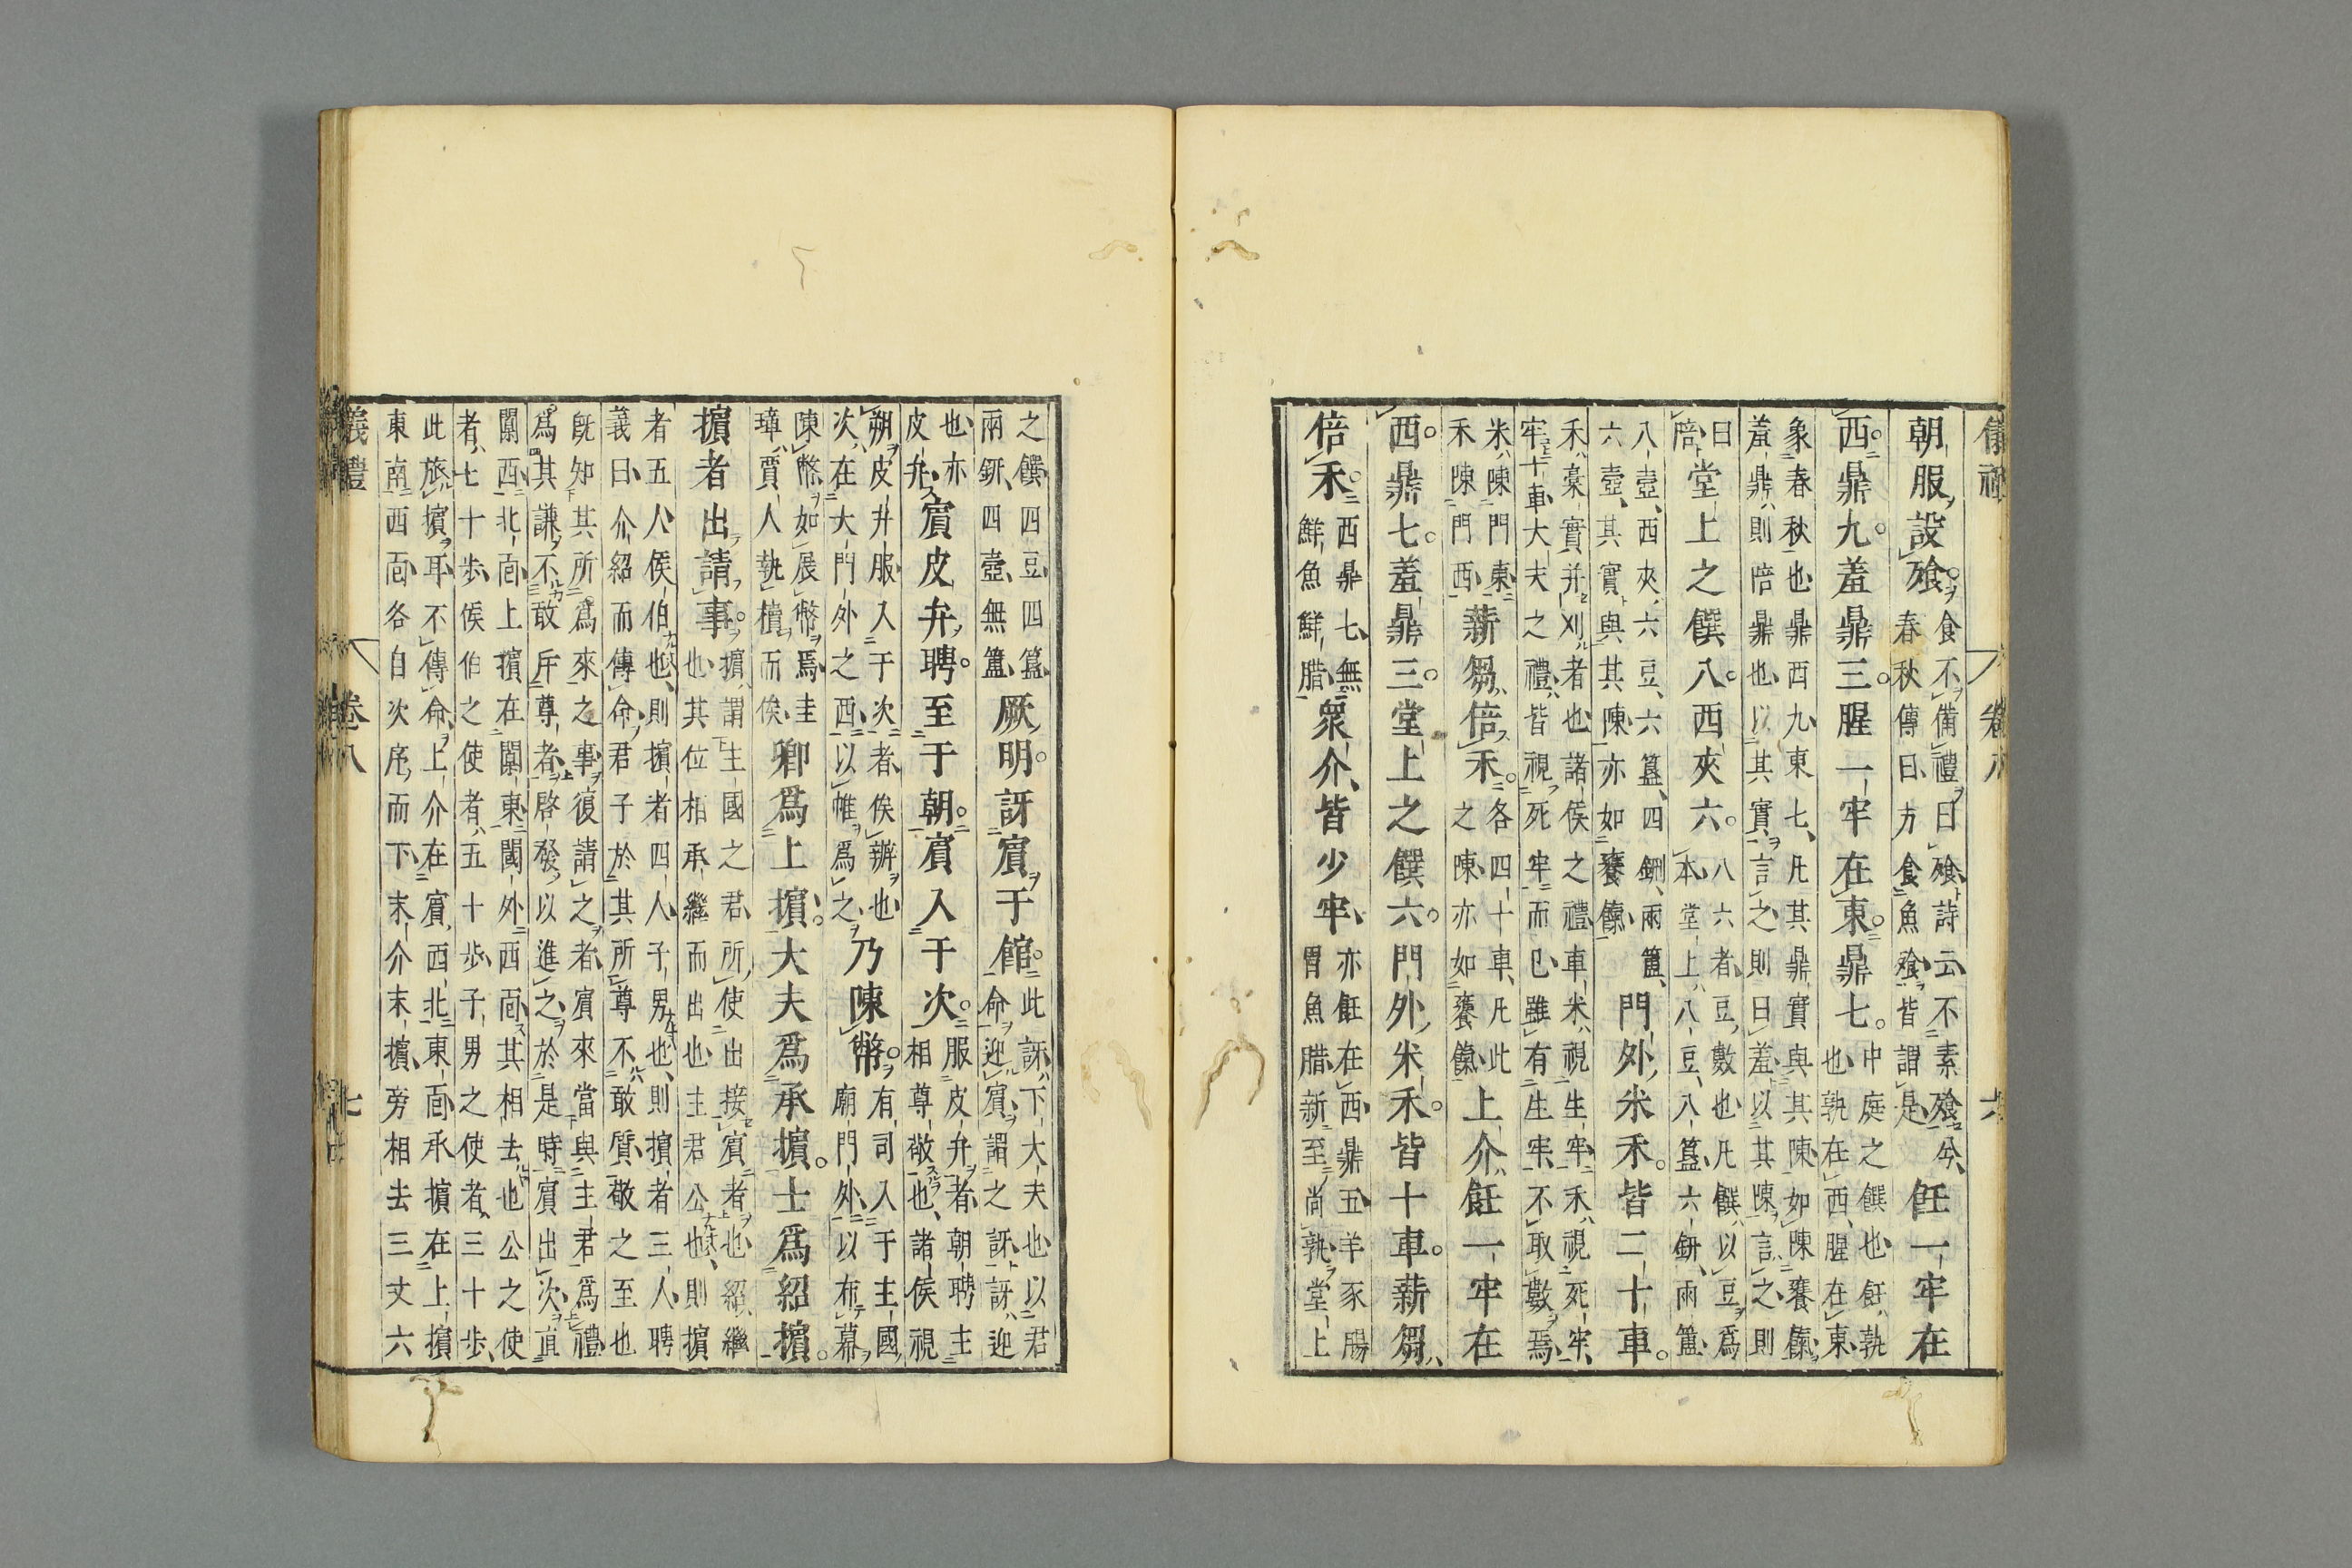 儀禮 卷八 六
朝服設飧食不備禮曰飧詩云不素飧兮
春秋傳曰方食魚飧皆謂是飪一牢在
西鼎九羞鼎三腥一牢在東鼎七中庭之饌也飪孰
也孰在西腥在東
象春秋也鼎西九東七凡其鼎實與其陳如陳饔餼
羞鼎則陪鼎也以其實言之則曰羞以其陳言之則
曰
陪堂上之饌八西夾六八六者豆數也凡饌以豆爲
本堂上八豆八簋六鉶兩簠
八壺西夾六豆六簋四鉶兩簠
六壺其實與其陳亦如饔餼門外米禾皆二十車
禾稾實并刈者也諸侯之禮車米視生牢禾視死牢
牢十車大夫之禮皆視死牢而已雖有生牢不取數焉
米陳門東
禾陳門西薪芻倍禾各四十車凡此
之陳亦如饔餼上介飪一牢在
西鼎七羞鼎三堂上之饌六門外米禾皆十車薪芻
倍禾西鼎七無
鮮魚鮮腊衆介皆少牢亦飪在西鼎五羊豕腸
胃魚腊新至尚孰堂上
之饌四豆四簋
兩鉶四壺無簠厥明訝賓于館此訝下大夫也以君
命迎賓謂之訝訝迎
也亦
皮弁賓皮弁聘至于朝賓入于次服皮弁者朝聘主
相尊敬也諸侯視
朔皮弁服入于次者俟辦也
次在大門外之西以帷爲之乃陳幣有司入于主國
廟門外以布幕
陳幣如展幣焉圭
璋賈人執櫝而俟卿爲上擯大夫爲承擯士爲紹擯
擯者出請事擯謂主國之君所使出接賓者也紹繼
也其位相承繼而出也主君公也則擯
者五人侯伯也則擯者四人子男也則擯者三人聘
義曰介紹而傳命君子於其所尊不敢質敬之至也
既知其所爲來之事復請之者賓來當與主君爲禮
爲其謙不敢斥尊者啓發以進之於是時賓出次直
闑西北面上擯在闑東閾外西面其相去也公之使
者七十步侯伯之使者五十步子男之使者三十步
此旅擯耳不傳命上介在賓西北東面承擯在上擯
東南西面各自次序而下末介末擯旁相去三丈六
義禮 卷八 七